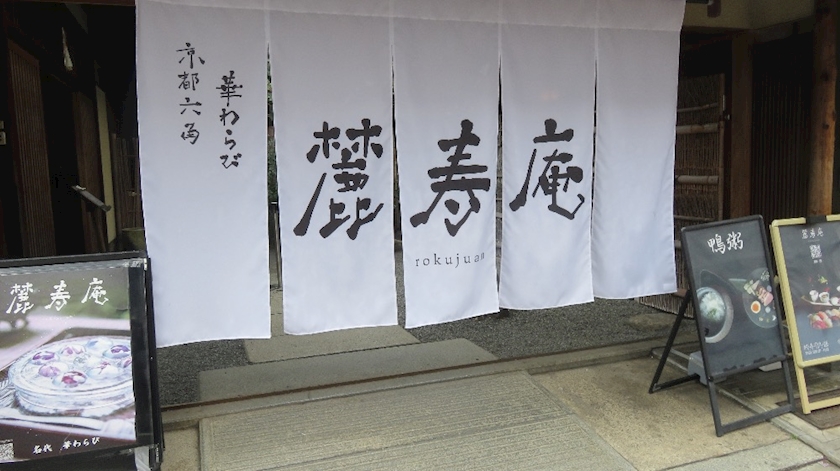 京都六角
華わらび
麓寿庵
rokujuan
麓寿庵
名代 華わらび
鴨粥
麓寿庵